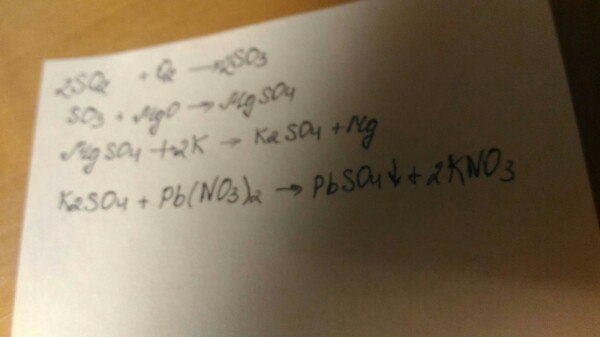 2SO2 + O2 → 2SO3
SO3 + MgO → MgSO4
MgSO4 + 2K → K2SO4 + Mg
K2SO4 + Pb(NO3)2 → PbSO4↓ + 2KNO3